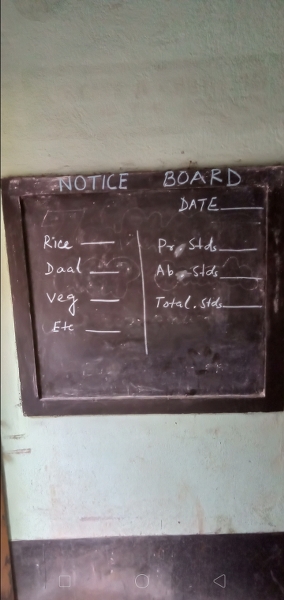 NOTICE BOARD
DATE
Rice
Daal
Veg
Etc
Pr. Stds
Ab. Stds
Total. Stds